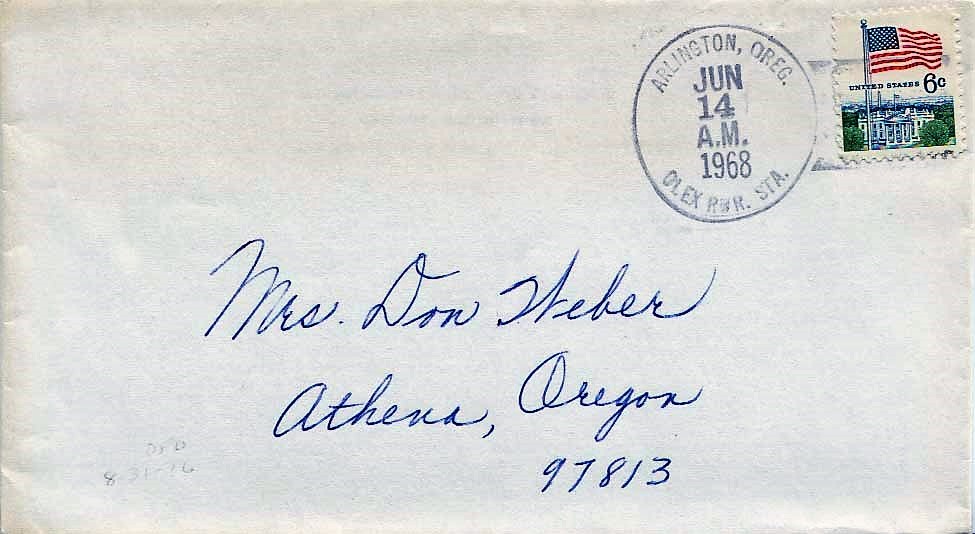 ARLINGTON, OREG.
JUN
14
A.M.
1968
OLEX RUR. STA.
UNITED STATES 6c
Mrs. Don Weber
Athena, Oregon
97813